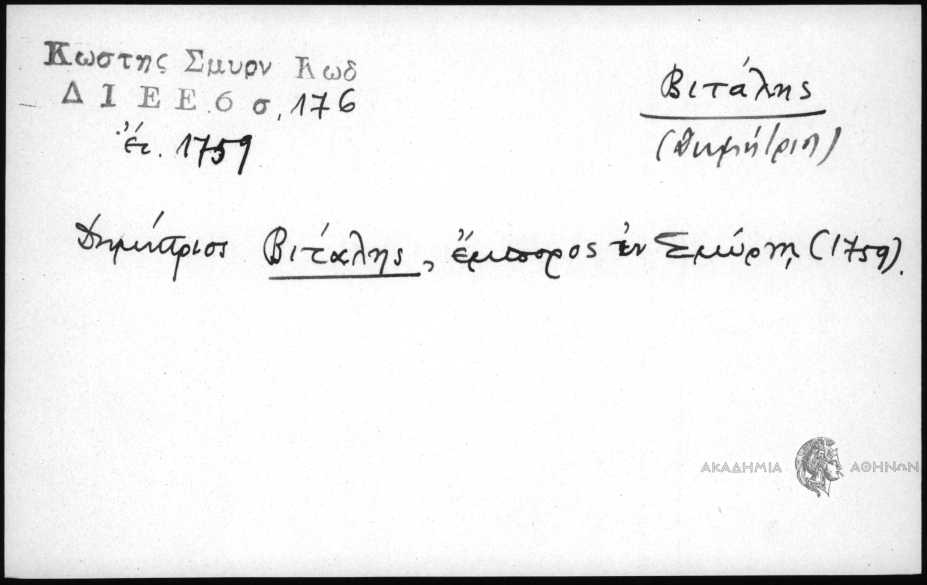 Κωστης Σμυρν Κωδ
Δ Ι Ε Ε 6 σ. 176
ἔτ. 1759
Βιτάλης
(Δημήτριος)
Δημήτριος Βιτάλης, ἔμπορος ἐν Σμύρνῃ (1759).
ΑΚΑΔΗΜΙΑ ΑΘΗΝΩΝ